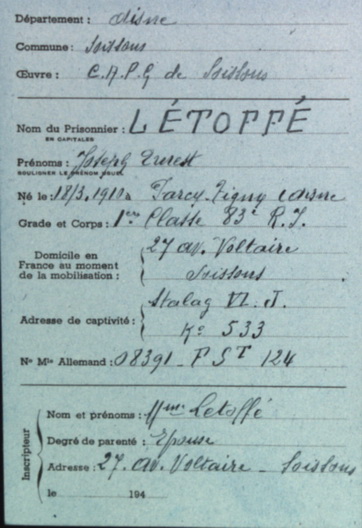 Département : Aisne
Commune : Soissons
Œuvre : C.A.P.G de Soissons
Nom du Prisonnier : LÉTOFFÉ
EN CAPITALES
Prénoms : Joseph Ernest
SOULIGNER LE PRÉNOM USUEL
Né le 18/3.1910 à Parcy-Tigny (Aisne
Grade et Corps : 1ère Classe 83e R.I.
Domicile en
France au moment
de la mobilisation :
27 av. Voltaire
Soissons
Adresse de captivité :
Stalag VI. J.
Ko 533
No Mle Allemand : 08391 - F ST 124
Inscripteur
Nom et prénoms : Mme Letoffé
Degré de parenté : Epouse
Adresse : 27. av. Voltaire - Soissons
le 194